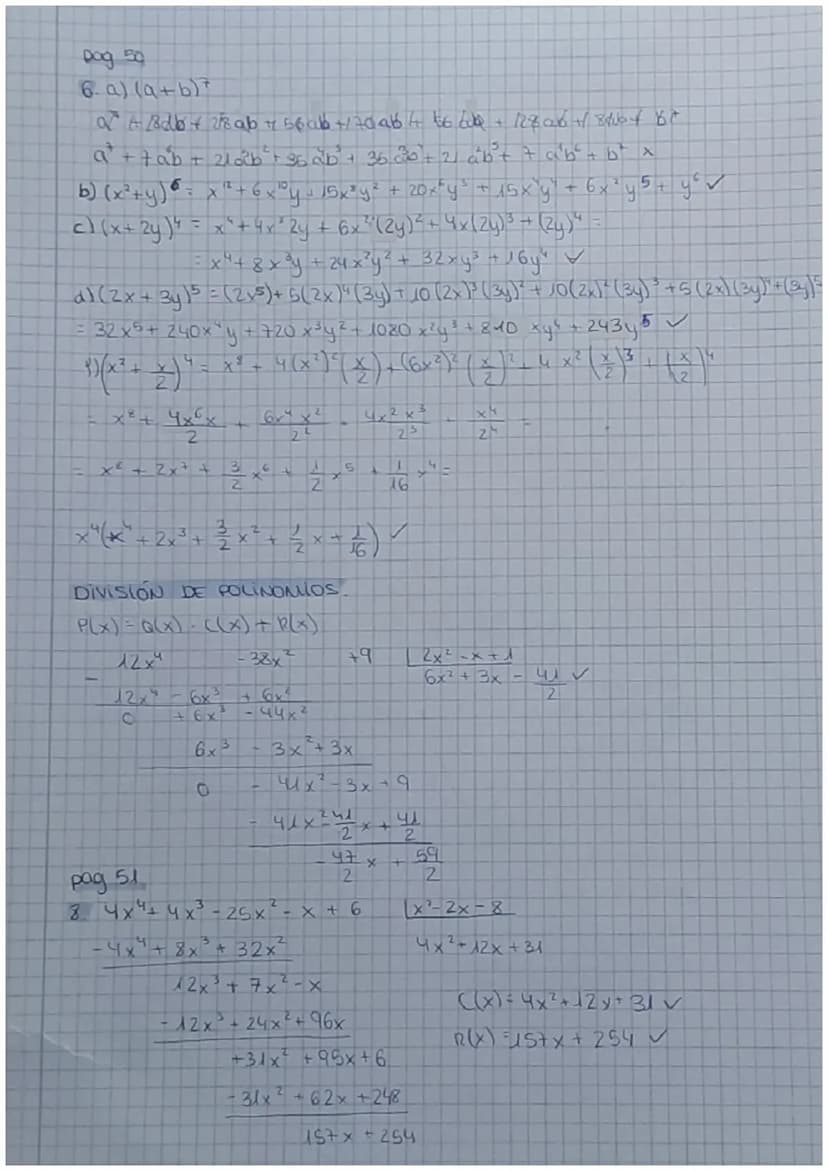 pag 50
6. a) (a+b)⁷
a⁷ + 7a⁶b + 21a⁵b² + 35a⁴b³ + 35a³b⁴ + 21a²b⁵ + 7a¹b⁶ + b⁷ x
b) (x²+y)⁶ = x¹² + 6x¹⁰y + 15x⁸y² + 20x⁶y³ + 15x⁴y⁴ + 6x²y⁵ + y⁶ ✓
c) (x+2y)⁴ = x⁴ + 4x³2y + 6x²(2y)² + 4x(2y)³ + (2y)⁴ =
= x⁴ + 8x³y + 24x²y² + 32xy³ + 16y⁴ ✓
d) (2x + 3y)⁵ = (2x⁵) + 5(2x)⁴(3y) + 10(2x)³(3y)² + 10(2x)²(3y)³ + 5(2x)(3y)⁴ + (3y)⁵
= 32x⁵ + 240x⁴y + 720x³y² + 1080x²y³ + 810xy⁴ + 243y⁵ ✓
f) (x² + x/2)⁴ = x⁸ + 4(x²)²(x/2) + (6x²)²(x/2)² + 4x²(x/2)³ + (x/2)⁴
= x⁸ + 4x⁶x/2 + 6x⁴x²/2² + 4x²x³/2³ + x⁴/2⁴ =
= x⁸ + 2x⁷ + 3/2 x⁶ + 1/2 x⁵ + 1/16 x⁴ =
x⁴(x⁴ + 2x³ + 3/2 x² + 1/2 x + 1/16) ✓
DIVISIÓN DE POLINOMIOS.
P(x) = Q(x) · C(x) + R(x)
12x⁴ -38x² +9 | 2x² - x + 1
- 12x⁴ - 6x³ + 6x² 6x² + 3x - 41/2 ✓
0 + 6x³ - 44x²
6x³ - 3x² + 3x
0 - 41x² - 3x + 9
- 41x² - 41/2 x + 41/2
- 47/2 x + 59/2
pag 51
8. 4x⁴ + 4x³ - 25x² - x + 6 | x² - 2x - 8
-4x⁴ + 8x³ + 32x² 4x² + 12x + 31
12x³ + 7x² - x
-12x³ + 24x² + 96x C(x) = 4x² + 12x + 31 ✓
+31x² + 95x + 6 R(x) = 157x + 254 ✓
-31x² + 62x + 248
157x + 254